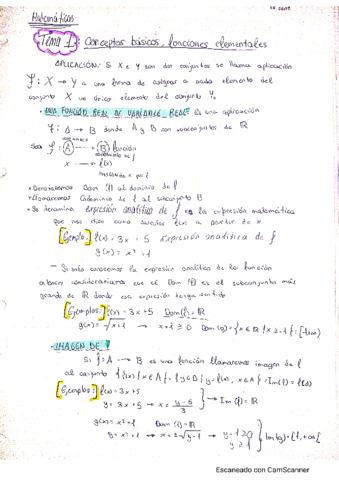 Matemáticas
Tema 1: Conceptos básicos, funciones elementales
APLICACIÓN: Si X e Y son dos conjuntos se llama aplicación
f: X → Y a una forma de asignar a cada elemento del
conjunto X un único elemento del conjunto Y.
- UNA FUNCIÓN REAL DE VARIABLE REAL: Es una aplicación
f: A → B donde A y B son subconjuntos de ℝ
Sea f: A → B función
x → f(x)
• Denotaremos Dom (f) al dominio de f
• Llamaremos Codominio de f al subconjunto B
• Se denomina expresión analítica de f a la expresión matemática
que nos dice como calcular f(x) a partir de x
Ejemplo: f(x) = 3x + 5 Expresión analítica de f
g(x) = x² + 1
- Si solo conocemos la expresión analítica de la función
entonces consideraremos que el Dom (f) es el subconjunto más
grande de ℝ donde esa expresión tenga sentido
Ejemplos: f(x) = 3x + 5 Dom(f) = ℝ
g(x) = √x+1 → x+1 ≥ 0 Dom (g) = {x ∈ ℝ / x ≥ -1} = [-1,+∞)
- IMAGEN DE f
Si f: A → B es una función llamaremos imagen de f
al conjunto {f(x) / x ∈ A} = {y ∈ B / y = f(x), x ∈ A} = Im(f) = f(A)
Ejemplos: f(x) = 3x + 5
y = 3x + 5 → x = y-5/3 → Im (f) = ℝ
g(x) = x² + 1 Dom (f) = ℝ
y = x² + 1 → x = ±√y-1 → y-1 ≥ 0 y ≥ 1 Im(g) = [1, +∞[
Escaneado con CamScanner